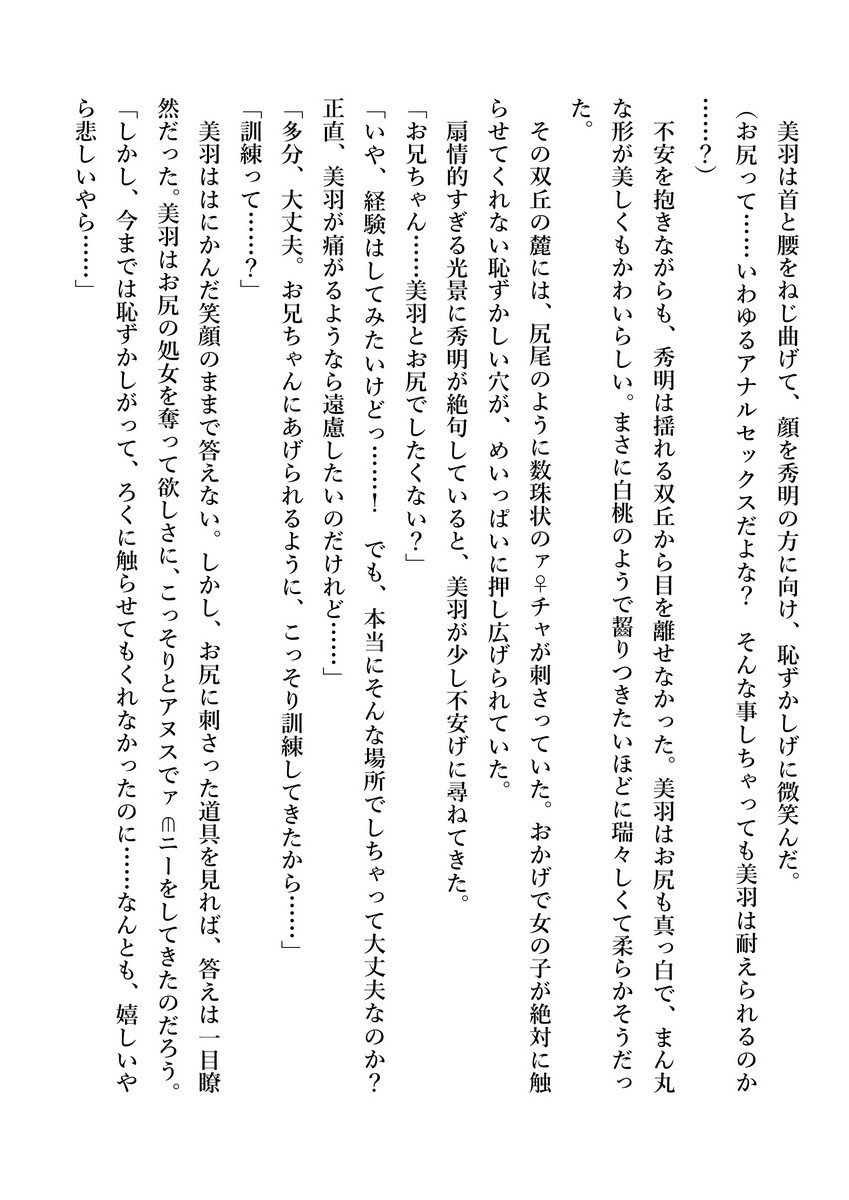 美羽は首と腰をねじ曲げて、顔を秀明の方に向け、恥ずかしげに微笑んだ。
(お尻って……いわゆるアナルセックスだよな?　そんな事しちゃっても美羽は耐えられるのか
……?)
不安を抱きながらも、秀明は揺れる双丘から目を離せなかった。美羽はお尻も真っ白で、まん丸
な形が美しくもかわいらしい。まさに白桃のようで齧りつきたいほどに瑞々しくて柔らかそうだっ
た。
その双丘の麓には、尻尾のように数珠状のァ♀チャが刺さっていた。おかげで女の子が絶対に触
らせてくれない恥ずかしい穴が、めいっぱいに押し広げられていた。
扇情的すぎる光景に秀明が絶句していると、美羽が少し不安げに尋ねてきた。
「お兄ちゃん……美羽とお尻でしたくない?」
「いや、経験はしてみたいけどっ……!　でも、本当にそんな場所でしちゃって大丈夫なのか?
正直、美羽が痛がるようなら遠慮したいのだけれど……」
「多分、大丈夫。お兄ちゃんにあげられるように、こっそり訓練してきたから……」
「訓練って……?」
美羽ははにかんだ笑顔のままで答えない。しかし、お尻に刺さった道具を見れば、答えは一目瞭
然だった。美羽はお尻の処女を奪って欲しさに、こっそりとアヌスでァ⋒ニーをしてきたのだろう。
「しかし、今までは恥ずかしがって、ろくに触らせてもくれなかったのに……なんとも、嬉しいや
ら悲しいやら……」